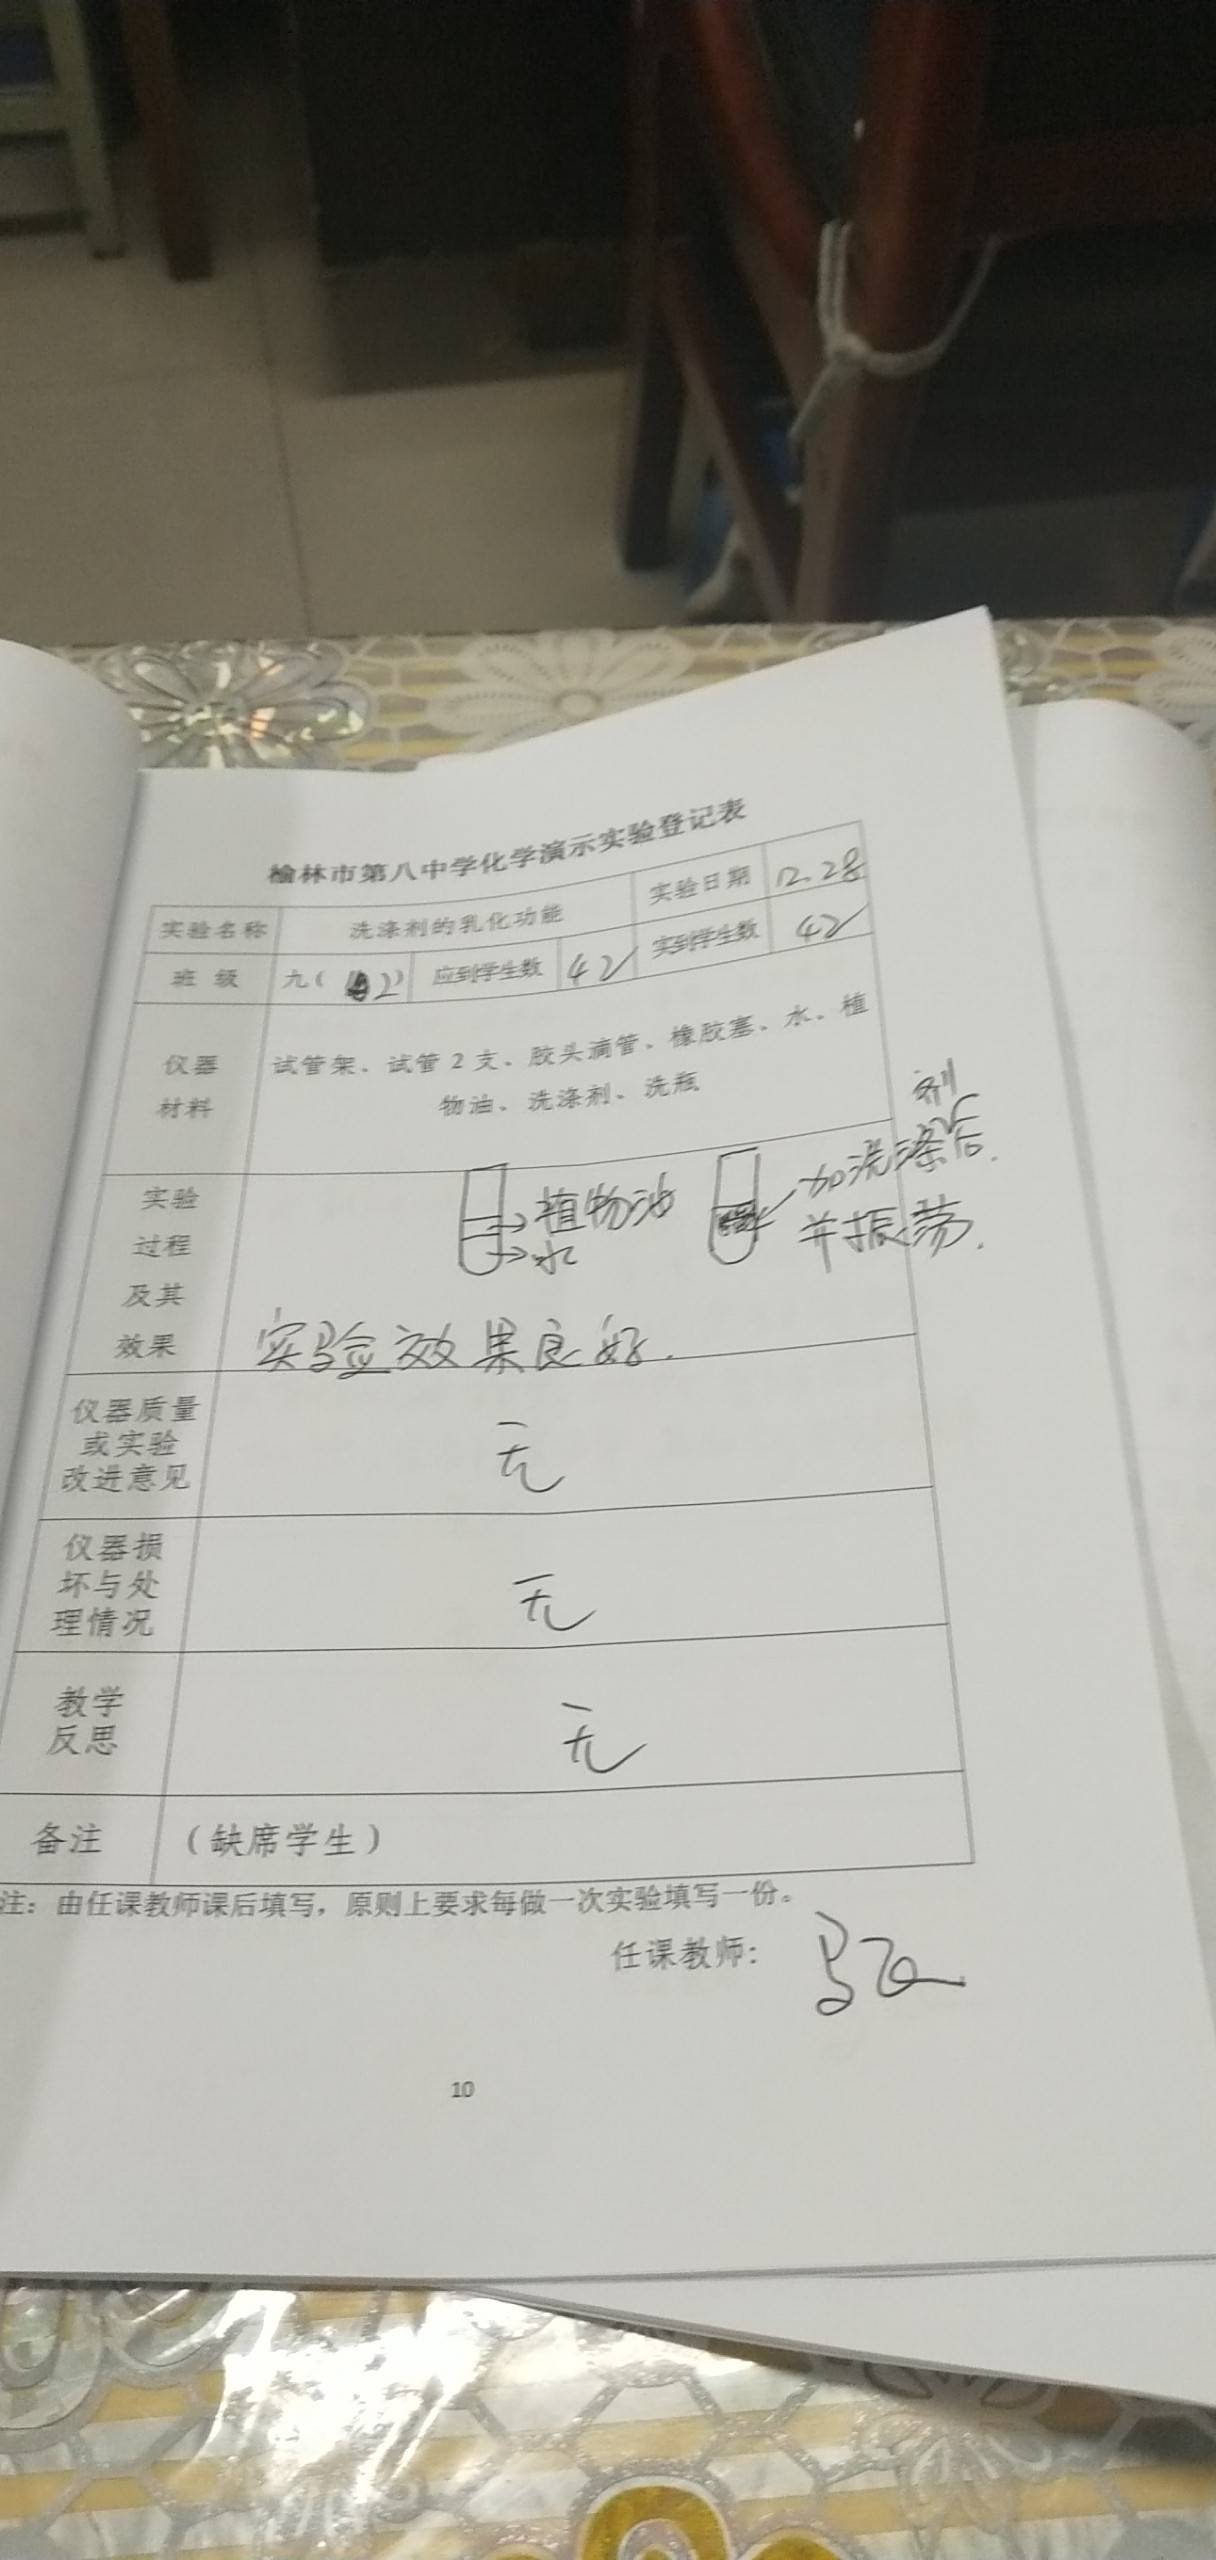 榆林市第八中学化学演示实验登记表
实验名称 洗涤剂的乳化功能 实验日期 12.28
班 级 九( 2) 应到学生数 42 实到学生数 42
仪器 试管架、试管2支、胶头滴管、橡胶塞、水、植
材料 物油、洗涤剂、洗瓶
实验
过程
及其
效果
植物油
水
加洗涤剂后
并振荡.
实验效果良好.
仪器质量
或实验
改进意见
无
仪器损
坏与处
理情况
无
教学
反思
无
备注 (缺席学生)
注：由任课教师课后填写，原则上要求每做一次实验填写一份。
任课教师:
10